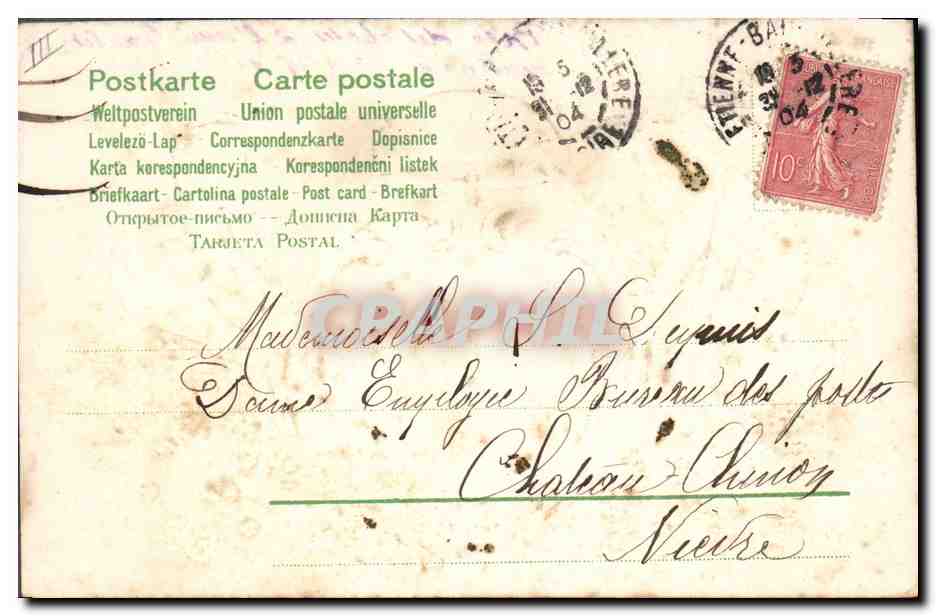 III
Postkarte Carte postale
Weltpostverein Union postale universelle
Levelezö-Lap Correspondenzkarte Dopisnice
Karta korespondencyjna Korespondenční listek
Briefkaart - Cartolina postale - Post card - Brefkort
Открытое-письмо -- Дописна Карта
Tarjeta Postal
18 5
31 12
04
18 5
12
04
10c
CPAPHIL
Mademoiselle S. Dupuis
Dame Employée Bureau des postes
Chateau-Chinon
Nièvre